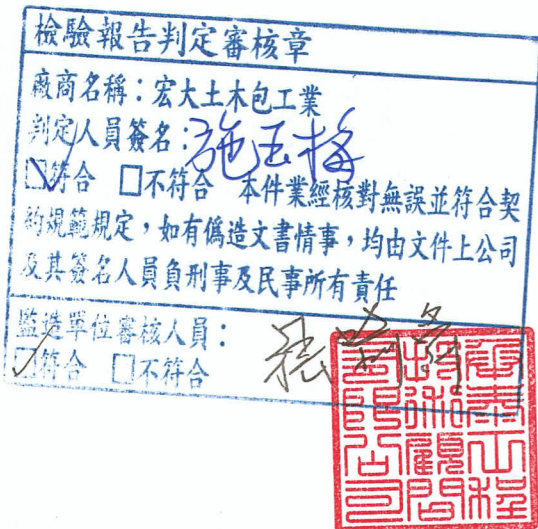 檢驗報告判定審核章
廠商名稱：宏大土木包工業
判定人員簽名：施玉梅
☑符合 □不符合 本件業經核對無誤並符合契
約規範規定，如有偽造文書情事，均由文件上公司
及其簽名人員負刑事及民事所有責任
監造單位審核人員：
☑符合 □不符合
工程
技術顧問
有限公司